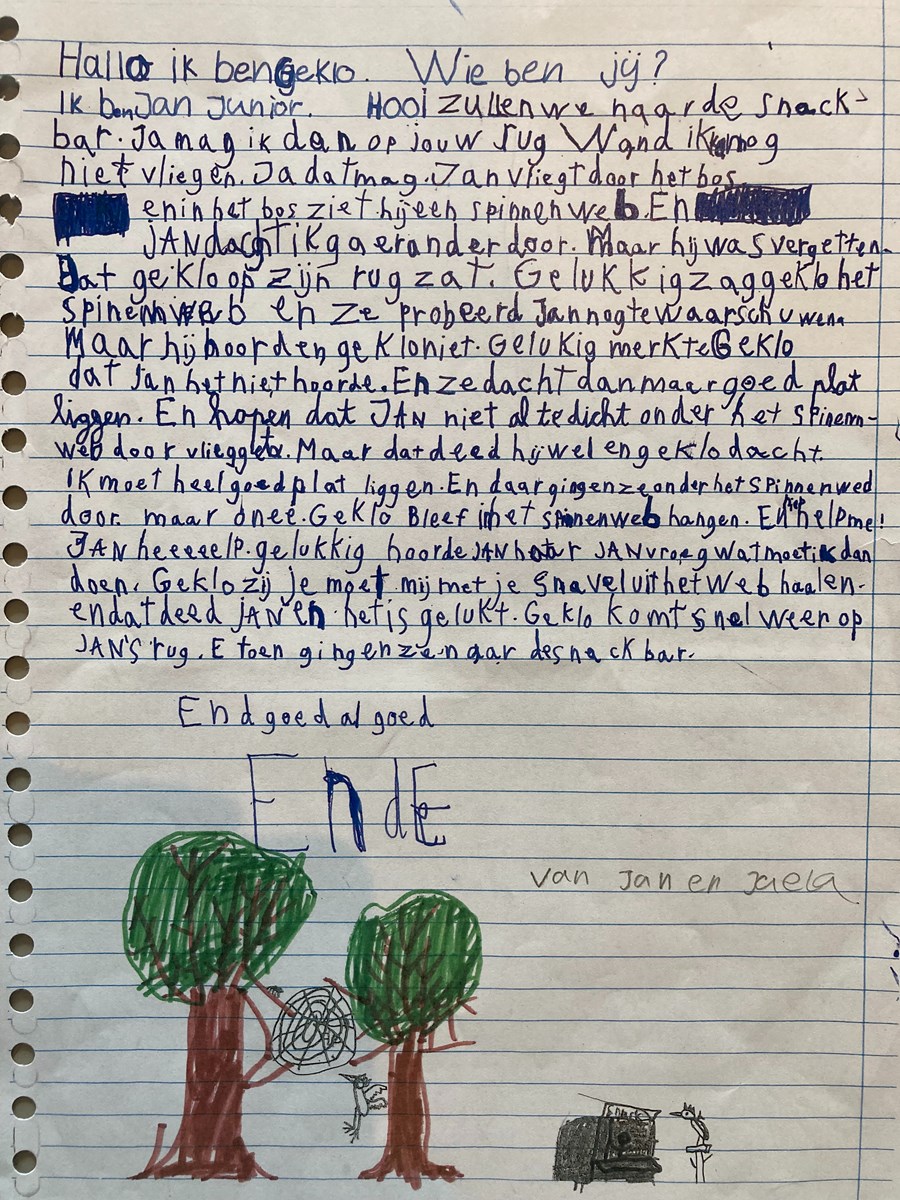 Hallo ik ben Geklo. Wie ben jij?
Ik ben Jan Junior. Hooi zullen we naar de snack-
bar. Ja mag ik dan op jouw rug Wand ik kan nog
niet vliegen. Ja dat mag. Jan vliegt door het bos
en in het bos ziet hij een spinnenweb. En
JAN dacht ik ga eronder door. Maar hij was vergetten.
Dat geikloop zijn rug zat. Gelukkig zag geklo het
spinennweb en ze probeerd Jan nog te waarschuwen.
Maar hij hoorden geklo niet. Gelukig merkte Geklo
dat Jan het niet hoorde. En ze dacht dan maar goed plat
liggen. En hopen dat JAN niet al te dicht onder het spinenn-
web door vliegt. Maar dat deed hij wel en geklo dacht.
Ik moet heel goed plat liggen. En daar gingen ze onder het spinnenwed
door. maar onee. Geklo Bleef in het spinenweb hangen. En riep help me!
JAN heeeeelp. gelukkig hoorde JAN haar JAN vroeg wat moet ik dan
doen. Geklo zij je moet mij met je snavel uit het web haalen.
en dat deed JAN en het is gelukt. Geklo komt snel weer op
JAN's rug. E toen gingen ze naar de snackbar.
End goed al goed
EndE
van Jan en Jaela